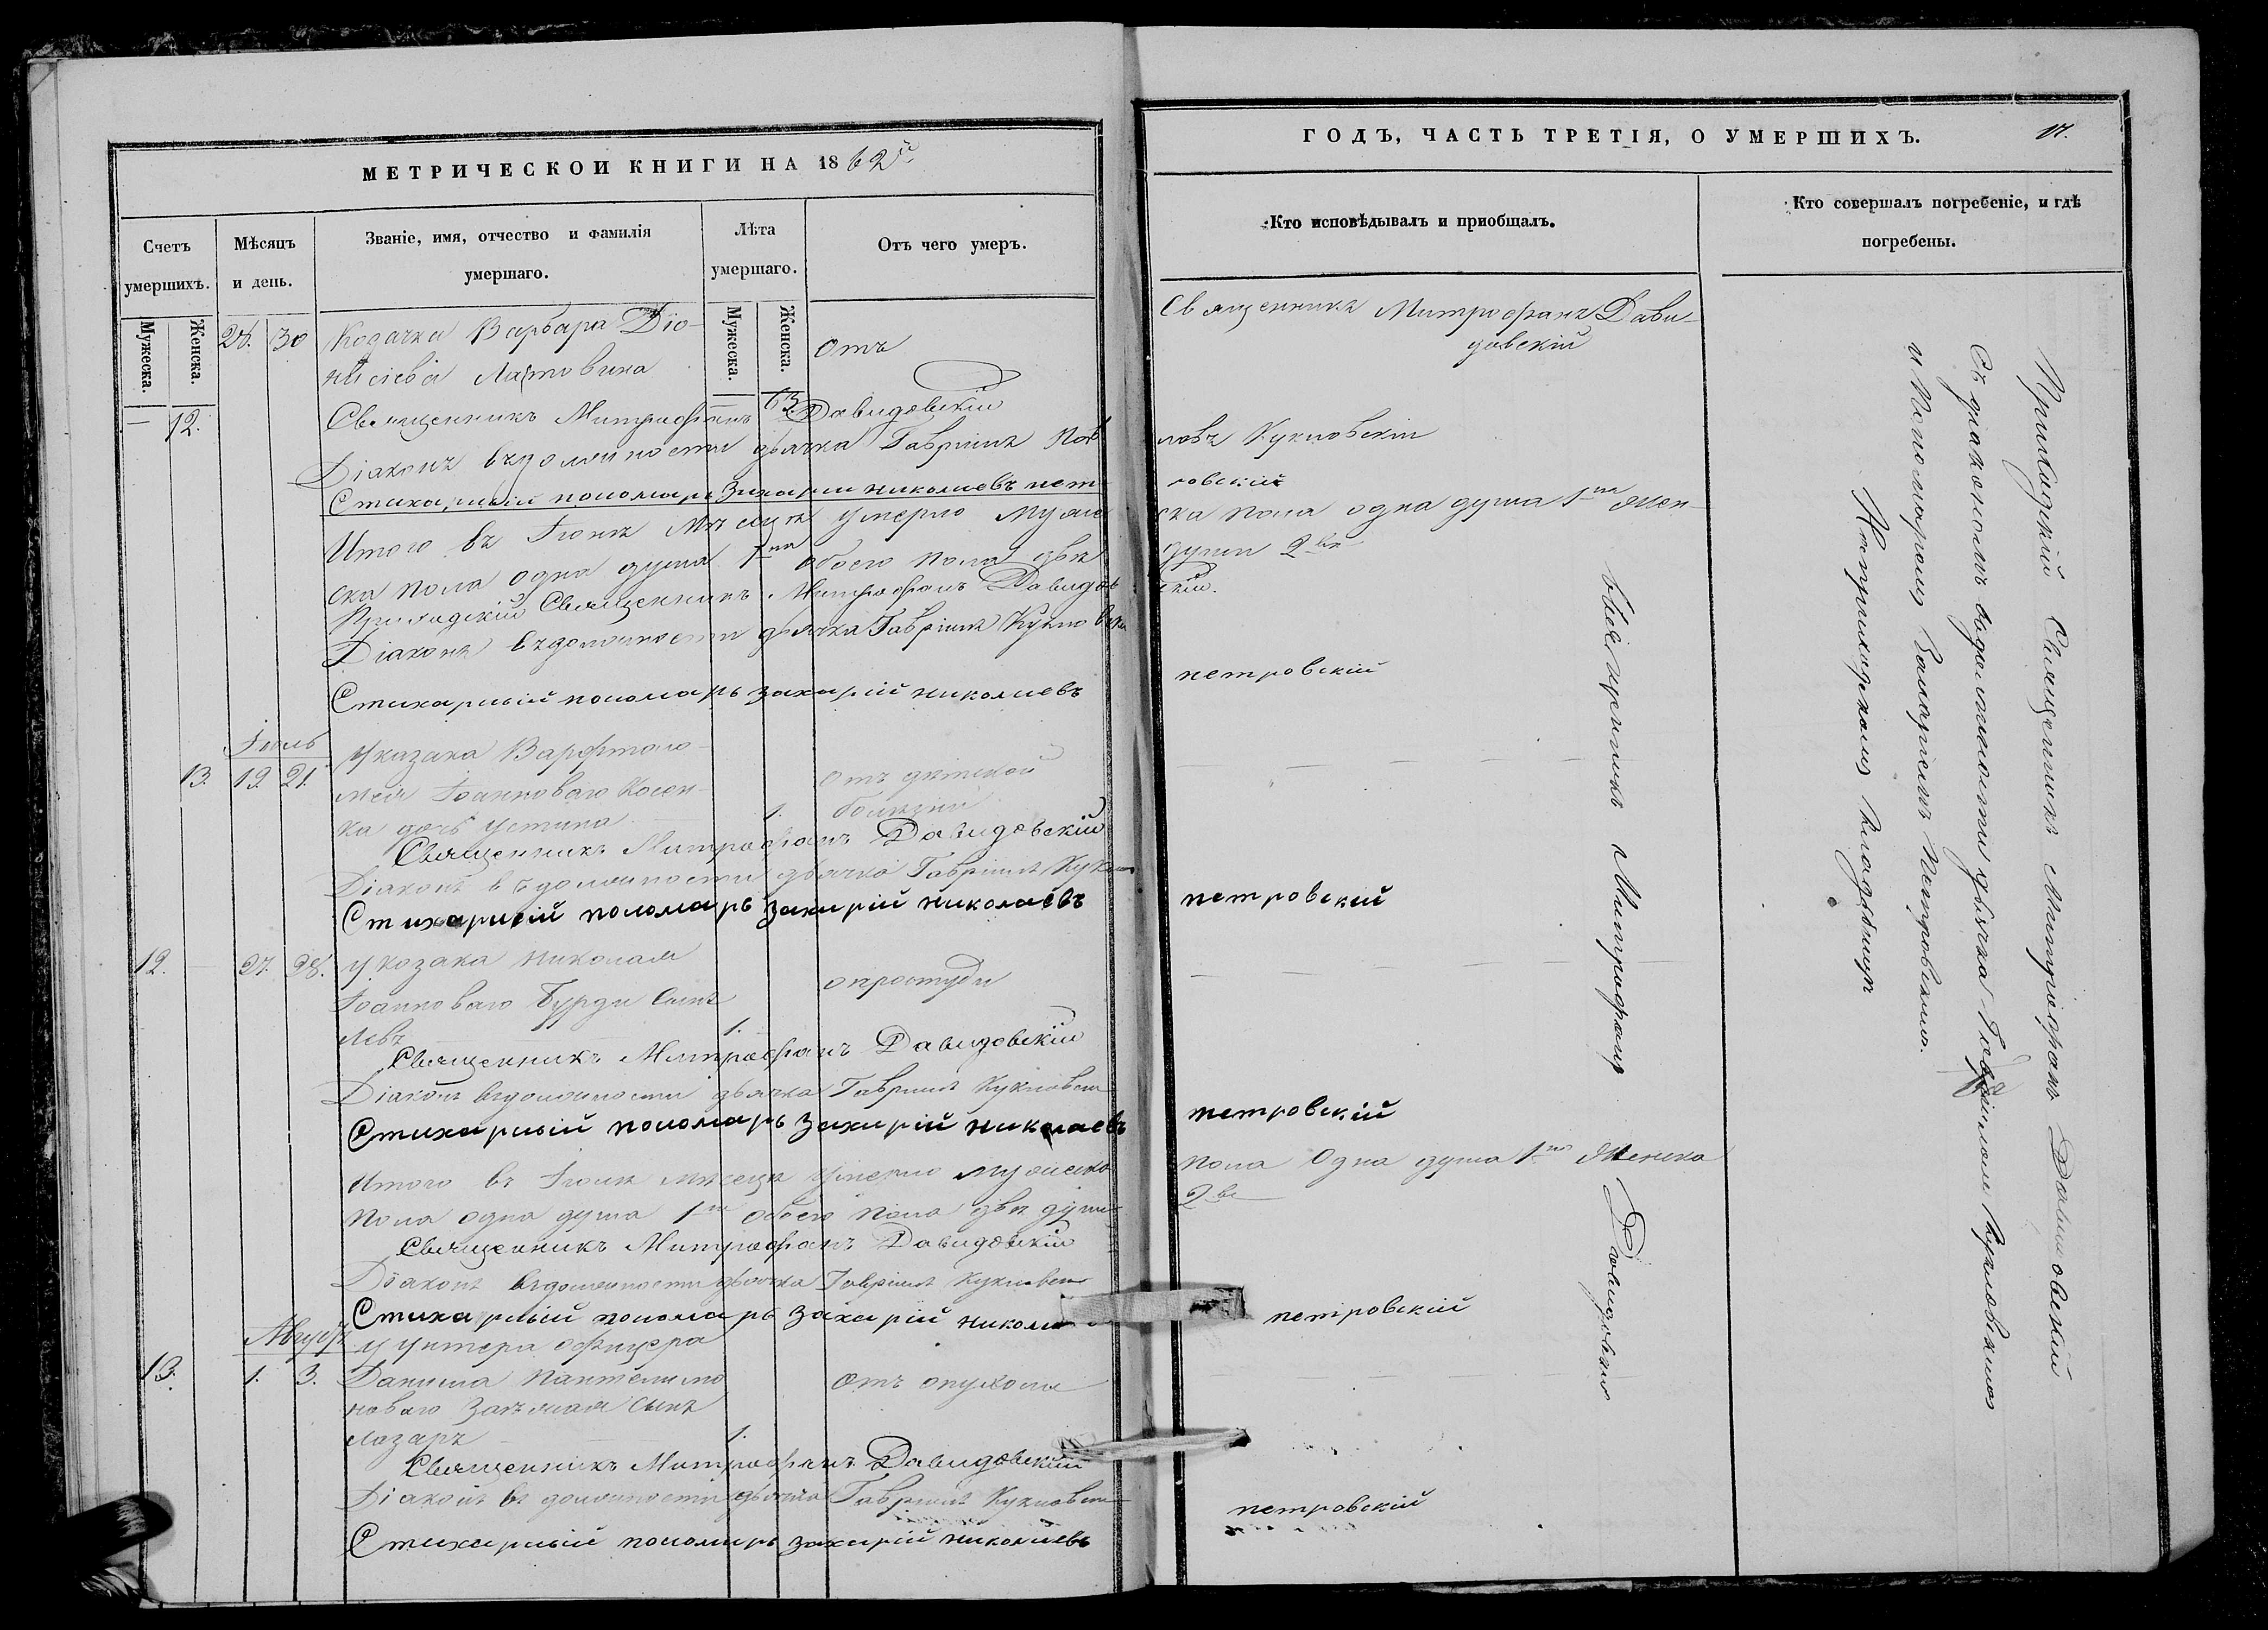 МЕТРИЧЕСКОЙ КНИГИ НА 1862й
Счетъ умершихъ.
Мѣсяцъ и день.
Званіе, имя, отчество и фамилія умершаго.
Лѣта умершаго.
Отъ чего умеръ.
Мужеска.
Женска.
Мужеска.
Женска.
28. 30 Козачка Варвара Діо-
нисіева
отъ
— 12.
63.
Священникъ Митрофанъ Давидовскій
Діаконъ въ должности дьячка Гавріилъ
Стихарный пономарь Захарій Николаевъ пет-
Итого въ Іюнѣ мѣсяцѣ умерло муже
ска пола одна душа 1на обоего пола двѣ
Приходскій Священникъ Митрофанъ Давидов
Діаконъ въ должности дьячка Гавріилъ Кукловск
Стихарный пономарь Захарій Николаевъ
Іюль
13. 19. 21. У казака Варфоломея Іоанноваго
дочь Устина
1.
отъ дѣтской
болѣзни
Священникъ Митрофанъ Давидовскій
Діаконъ въ должности дьячка Гавріилъ Куклов
Стихарный пономарь Захарій Николаевъ
12. 27. 28. У козака Николая
Іоанноваго Бурди сынъ
Левъ
1.
опростуди
Священникъ Митрофанъ Давидовскій
Діаконъ въ должности дьячка Гавріилъ Кукловск
Стихарный пономарь Захарій Николаевъ
Итого въ Іюлѣ мѣсяцѣ умерло мужеска
пола одна душа 1на обоего пола двѣ души
Священникъ Митрофанъ Давидовскій
Діаконъ въ должности дьячка Гавріилъ Кукловск
Стихарный пономарь Захарій Никола
Августъ
У унтера офицера
13. 1. 3. Даніила Пантелимо
новаго сынъ
Лазарь
1.
отъ опухоли
Священникъ Митрофанъ Давидовскій
Діаконъ въ должности дьячка Гавріилъ Кукловск
Стихарный пономарь Захарій Николаевъ
ГОДЪ, ЧАСТЬ ТРЕТІЯ, О УМЕРШИХЪ.
17.
Кто исповѣдывалъ и пріобщалъ.
Кто совершалъ погребеніе, и гдѣ
погребены.
Священникъ Митрофанъ Дави-
довскій
ловъ Кукловскій
ровскій
ска пола одна душа 1на Жен-
души 2вѣ
скій.
петровскій
петровскій
петровскій
пола одна душа 1на Женска
2вѣ
петровскій
петровскій
Священникъ Митрофанъ Давидовскій
Приходскій Священникъ Митрофанъ Давидовскій
Съ діакономъ въ должности дьячка Гавріиломъ Кукловскимъ
и Пономаремъ Захаріемъ Петровскимъ.
На приходскомъ кладбищѣ